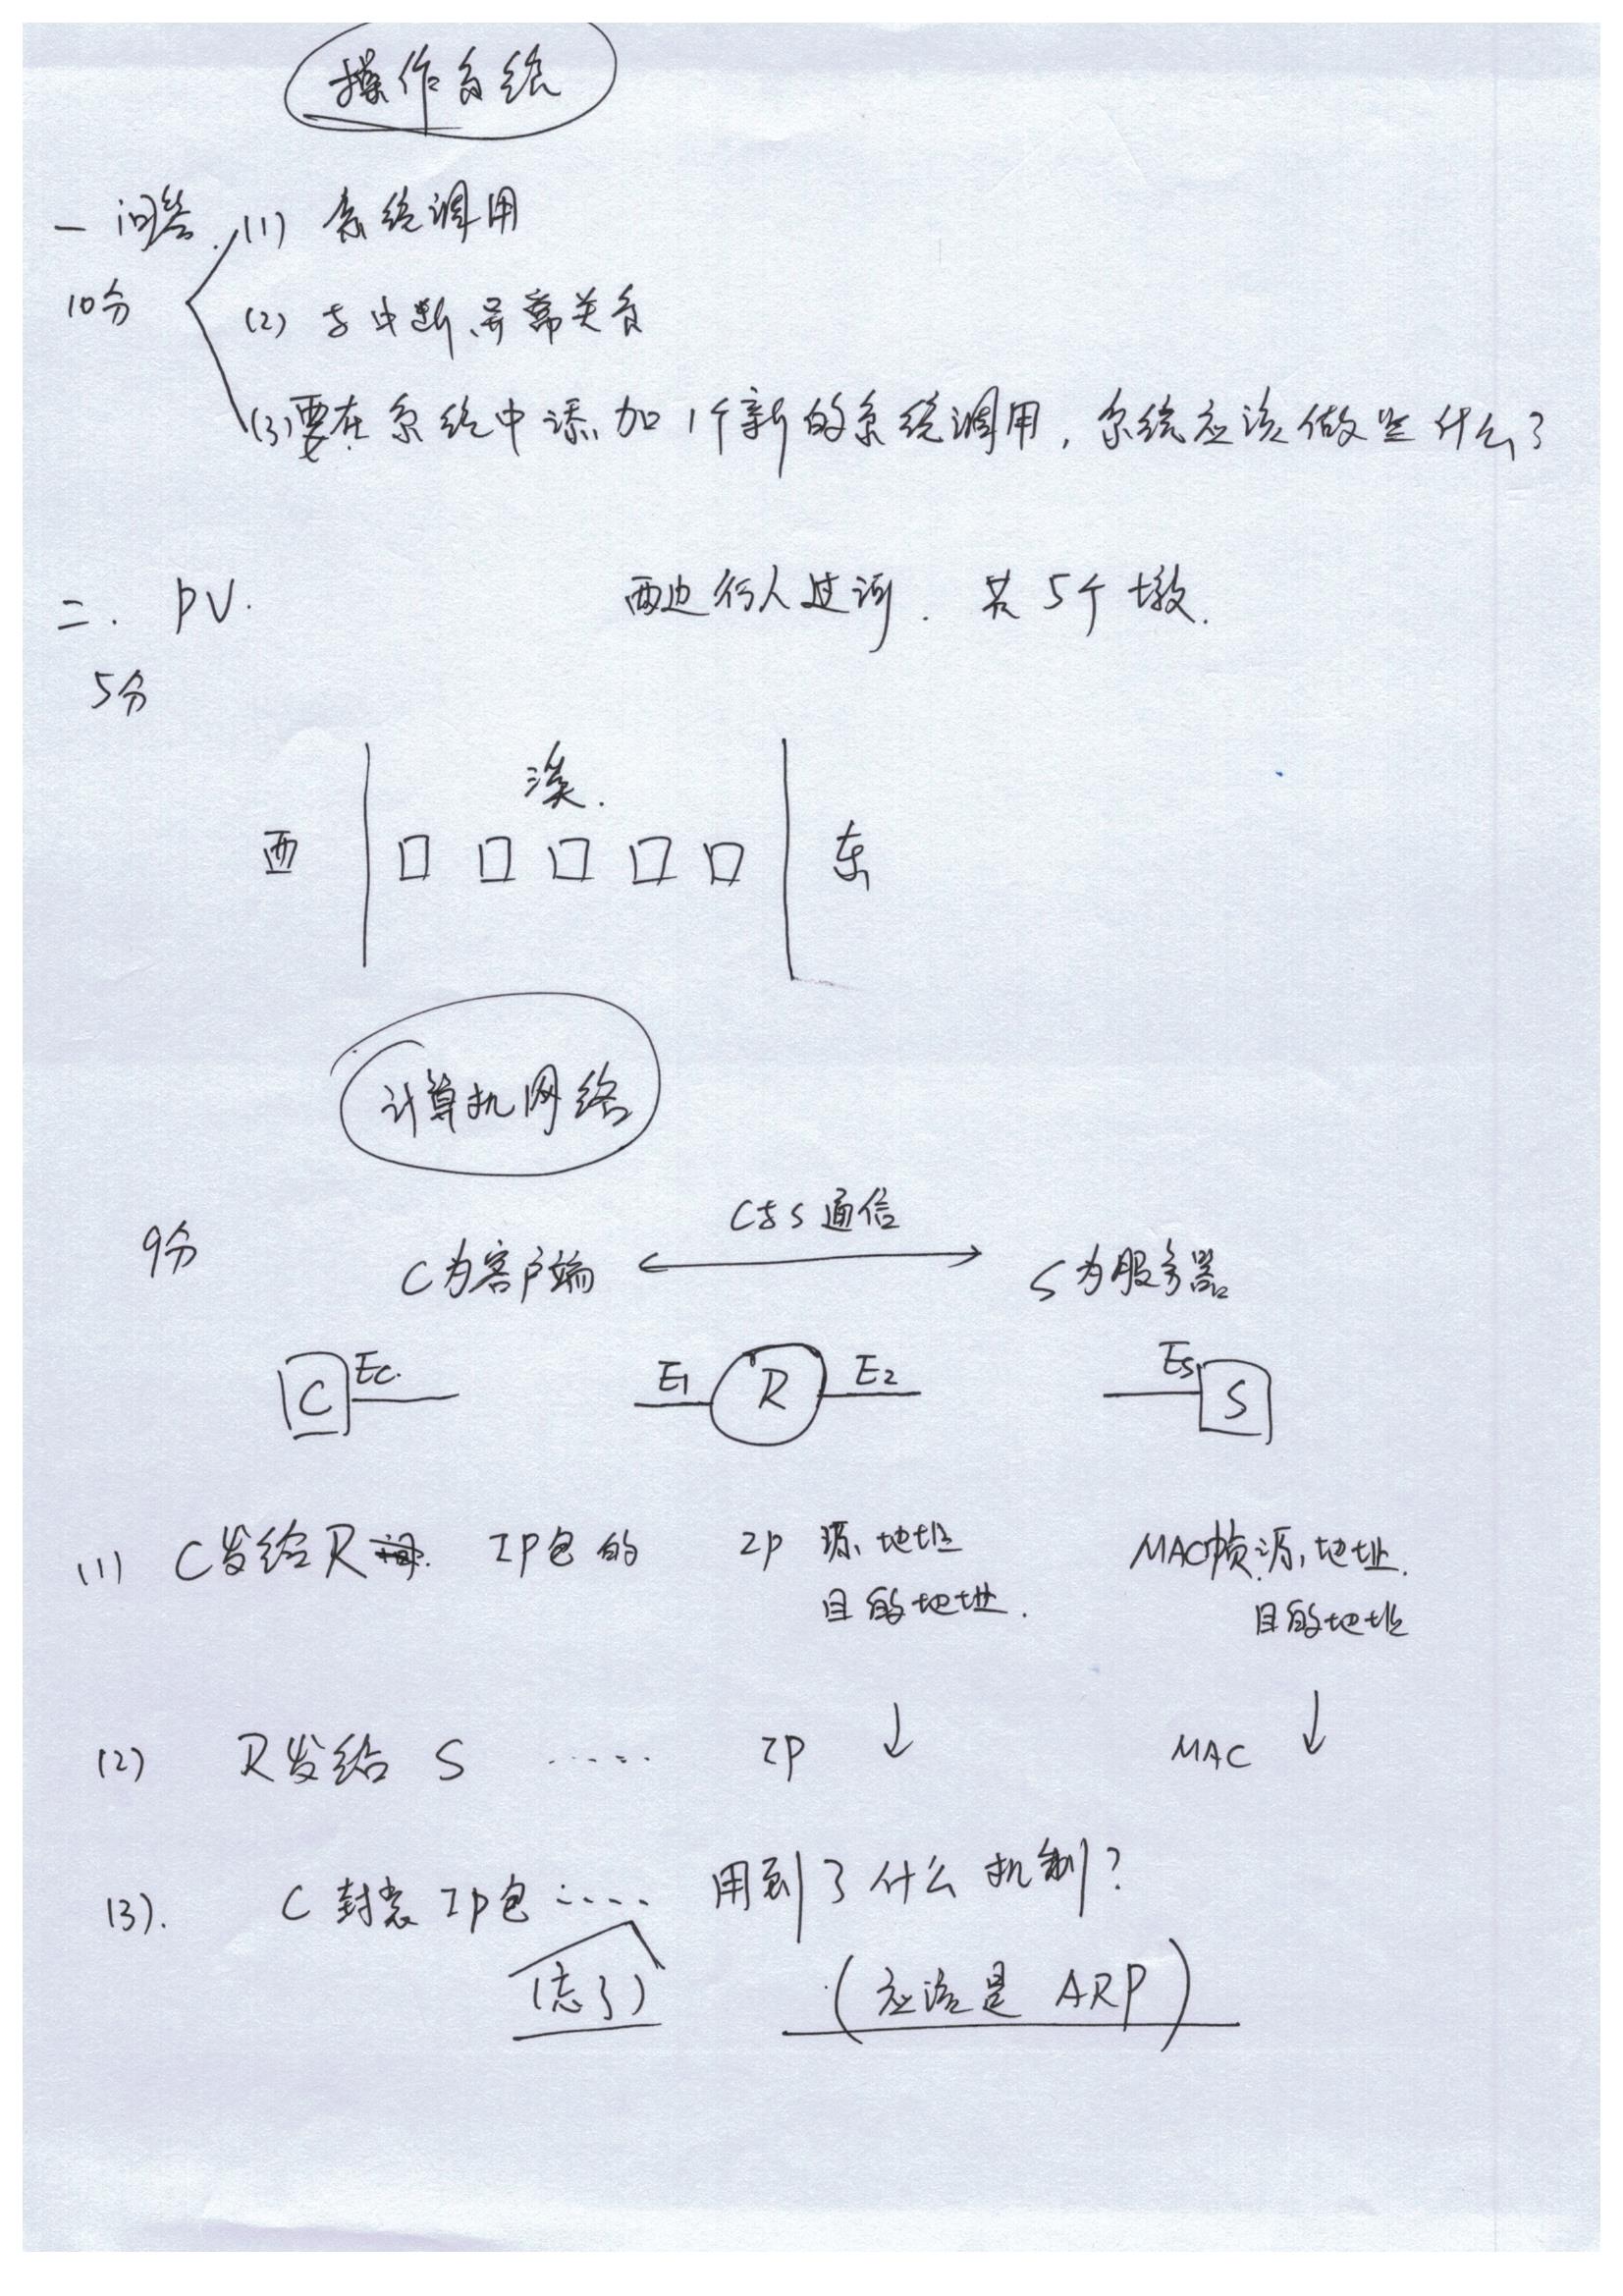 操作系统
一 问答. (1) 系统调用
10分
(2) 与中断、异常关系
(3) 要在系统中添加1个新的系统调用, 系统应该做些什么?
二. PV. 两边行人过河. 共5个墩.
5分
溪.
西 东
计算机网络
9分
C与S通信
C为客户端 S为服务器
C Ec. E1 R E2 Es S
(1) C发给R IP包的 IP 源地址 MAC帧源地址.
目的地址. 目的地址
(2) R发给 S ····· IP ↓ MAC ↓
(3). C 封装 IP包 ····· 用到了什么机制?
(忘了) (应该是 ARP)